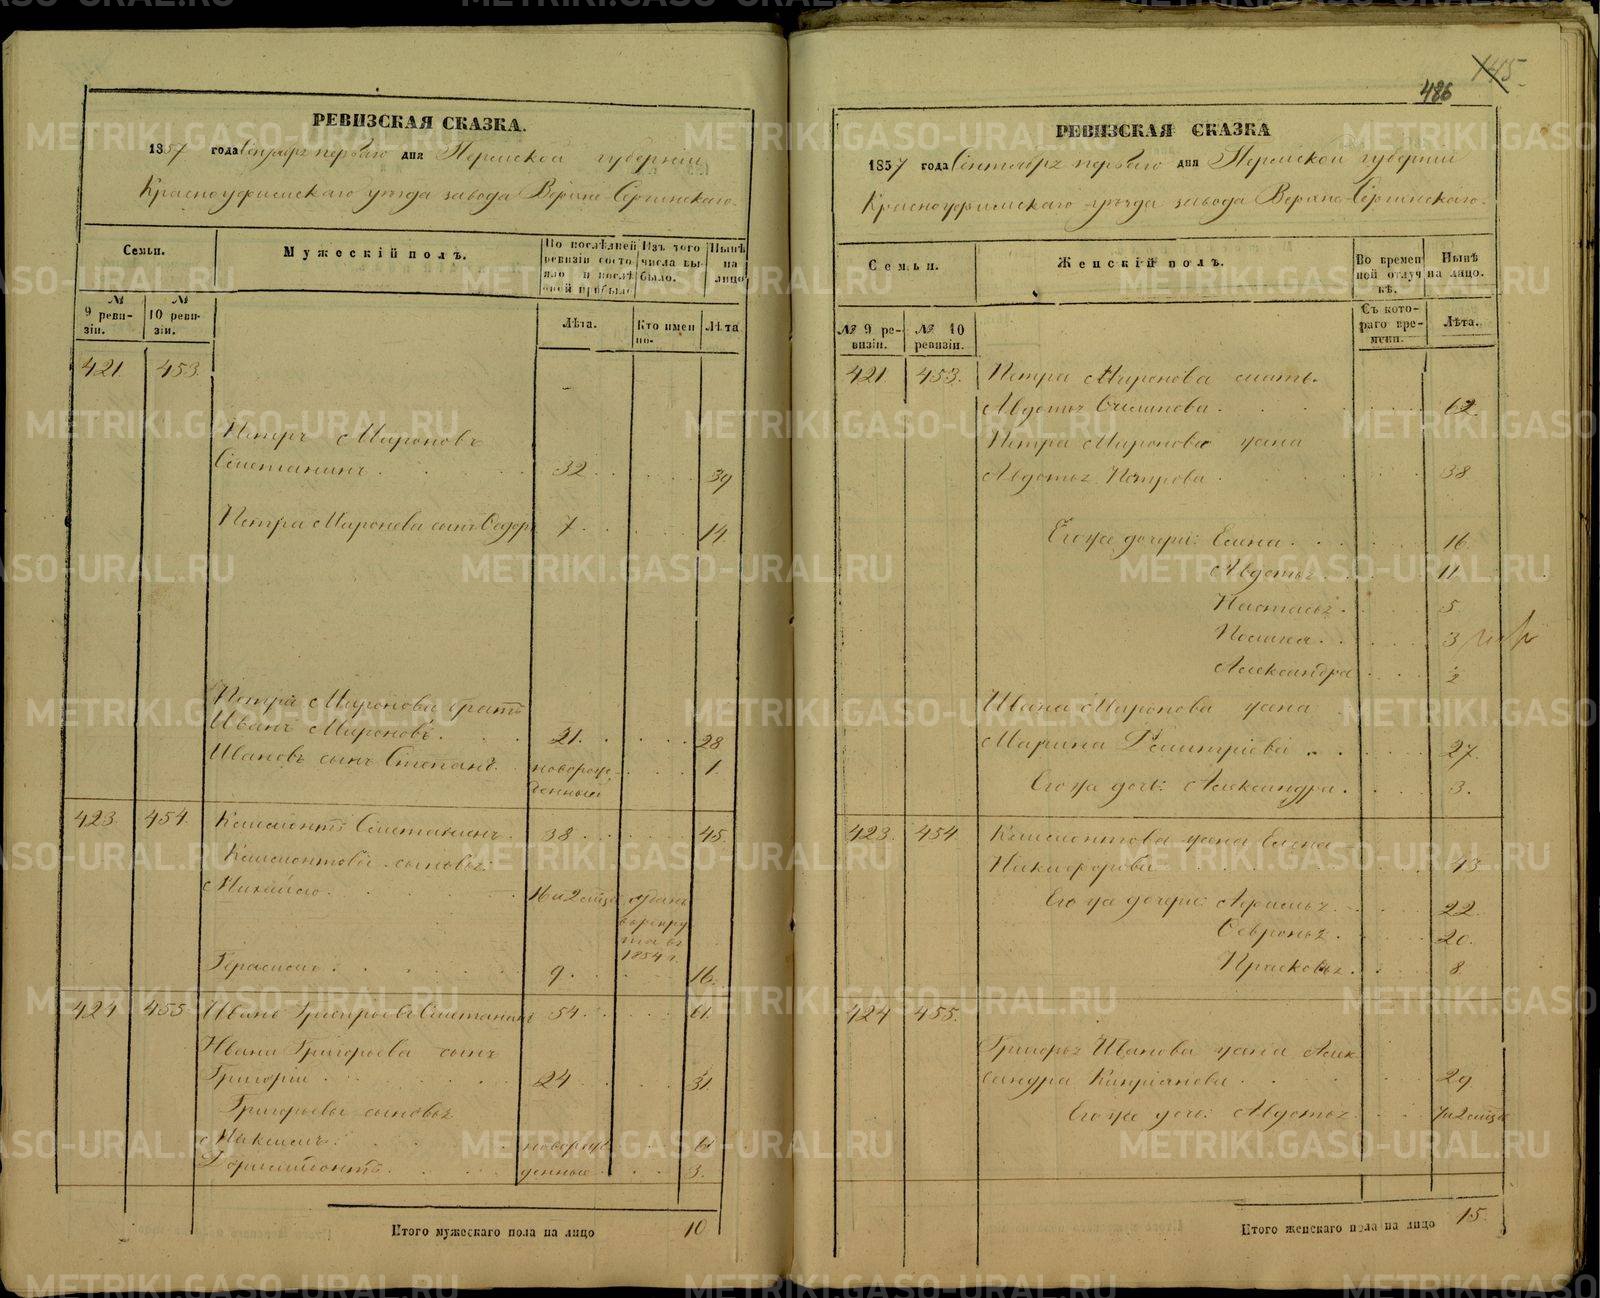 РЕВИЗСКАЯ СКАЗКА.
1857 года Сентября перваго дня Пермской губернии
Красноуфимскаго уѣзда завода Верхне-Сергинскаго.
Семьи.
Мужескій полъ.
По послѣдней ревизіи состояло и послѣ оной прибыло
Изъ того числа выбыло.
Нынѣ на лицо
№ 9 ревизіи.
№ 10 ревизіи.
Лѣта.
Кто именно.
Лѣта
421. 453.
Петръ Мироновъ
Сметанинъ 32 39
Петра Миронова сынъ Ѳедоръ 7 14
Петра Миронова братъ
Иванъ Мироновъ 21. 28
Ивановъ сынъ Степанъ новорож- 1.
денный
423. 454. Климентъ Сметанинъ 38 45.
Климентовы сыновья:
Михайло 16 и 2 мѣсяц отданъ
в рекру
та въ
1854 г.
Герасимъ 9 16.
424 455. Иванъ Григорьевъ Сметанинъ 54 61.
Ивана Григорьева сынъ
Григорій 24 31.
Григорьевы сыновья
Максимъ новорож
денные 3.
Итого мужескаго пола на лицо 10
145
486
РЕВИЗСКАЯ СКАЗКА
1857 года Сентября перваго дня Пермской губернии
Красноуфимскаго уѣзда завода Верхне-Сергинскаго.
Семьи.
Женскій полъ.
Во временной отлучкѣ.
Нынѣ на лицо.
№ 9 ревизіи.
№ 10 ревизіи.
Съ котораго времени.
Лѣта.
421. 453. Петра Миронова мать.
Авдотья 62.
Петра Миронова жена
Авдотья Петрова 38
Его же дочери: Елена 16
Авдотья 11.
Настасья 5
3
Александра 2
Ивана Миронова жена
Марина Дмитріева 27.
Его же дочь: Александра 3.
423. 454. Климентова жена Елена
Никифорова 43
Его же дочери: 22
Ѳевронья 20.
Прасковья 8
424 455. Григорья Иванова жена Алек
сандра Кипріянова 29.
Его же дочь: Авдотья
Итого женскаго пола на лицо 15.
METRIKI.GASO-URAL.RU